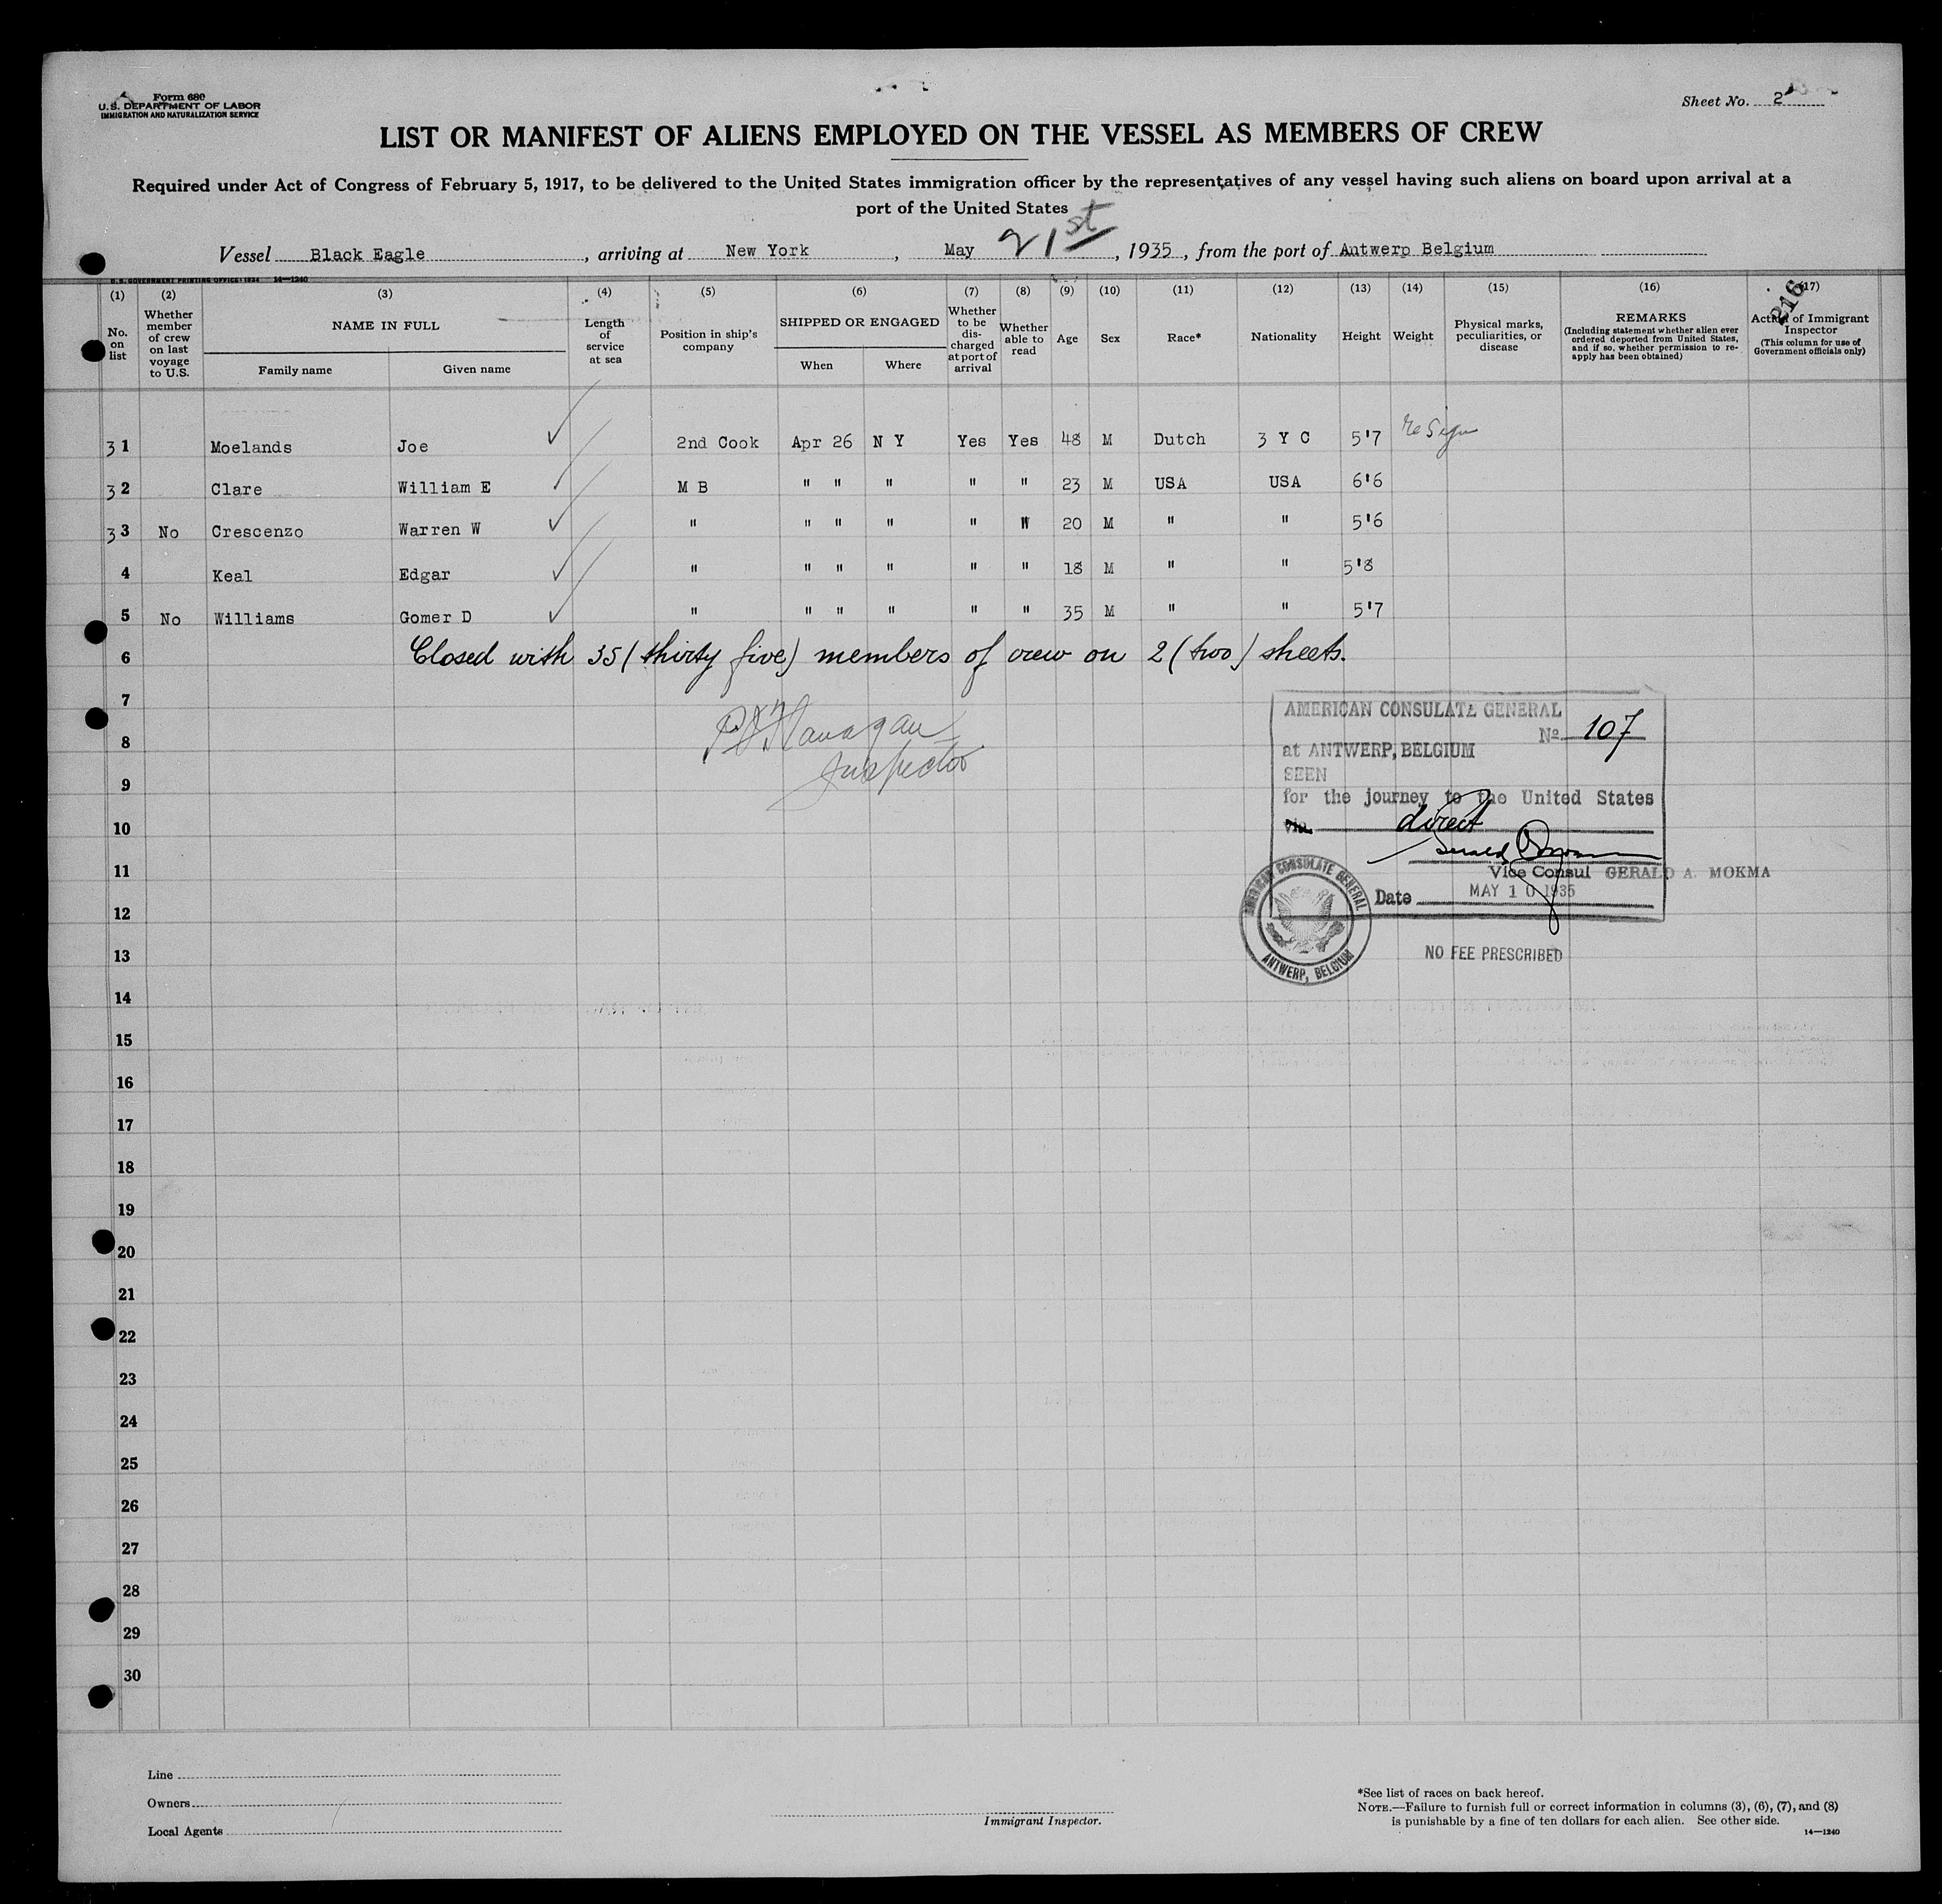 Form 680
U. S. DEPARTMENT OF LABOR
IMMIGRATION AND NATURALIZATION SERVICE
Sheet No. 2
LIST OR MANIFEST OF ALIENS EMPLOYED ON THE VESSEL AS MEMBERS OF CREW
Required under Act of Congress of February 5, 1917, to be delivered to the United States immigration officer by the representatives of any vessel having such aliens on board upon arrival at a
port of the United States
Vessel Black Eagle, arriving at New York, May 21st, 1935, from the port of Antwerp Belgium
U. S. GOVERNMENT PRINTING OFFICE: 1934 14—1240
(1) (2) (3) (4) (5) (6) (7) (8) (9) (10) (11) (12) (13) (14) (15) (16) (17)
216
No. on list
Whether member of crew on last voyage to U.S.
NAME IN FULL
Family name Given name
Length of service at sea
Position in ship's company
SHIPPED OR ENGAGED
When Where
Whether to be discharged at port of arrival
Whether able to read
Age
Sex
Race*
Nationality
Height
Weight
Physical marks, peculiarities, or disease
REMARKS
(Including statement whether alien ever ordered deported from United States, and if so, whether permission to re-apply has been obtained)
Action of Immigrant Inspector
(This column for use of Government officials only)
31 Moelands Joe 2nd Cook Apr 26 N Y Yes Yes 48 M Dutch 3 Y C 5'7
32 Clare William E M B " " " " " 23 M USA USA 6'6
33 No Crescenzo Warren W " " " " " " 20 M " " 5'6
4 Keal Edgar " " " " " " 18 M " " 5'8
5 No Williams Gomer D " " " " " " 35 M " " 5'7
6 Closed with 35 (thirty five) members of crew on 2 (two) sheets.
7
8 Flanagan
Inspector
9
10
11
12
13
14
15
16
17
18
19
20
21
22
23
24
25
26
27
28
29
30
AMERICAN CONSULATE GENERAL
No. 107
at ANTWERP, BELGIUM
SEEN
for the journey to the United States
via direct
Vice Consul GERALD A. MOKMA
Date MAY 10 1935
AMERICAN CONSULATE GENERAL
ANTWERP, BELGIUM
NO FEE PRESCRIBED
Line
Owners
Local Agents
Immigrant Inspector.
*See list of races on back hereof.
NOTE.—Failure to furnish full or correct information in columns (3), (6), (7), and (8)
is punishable by a fine of ten dollars for each alien. See other side.
14—1240